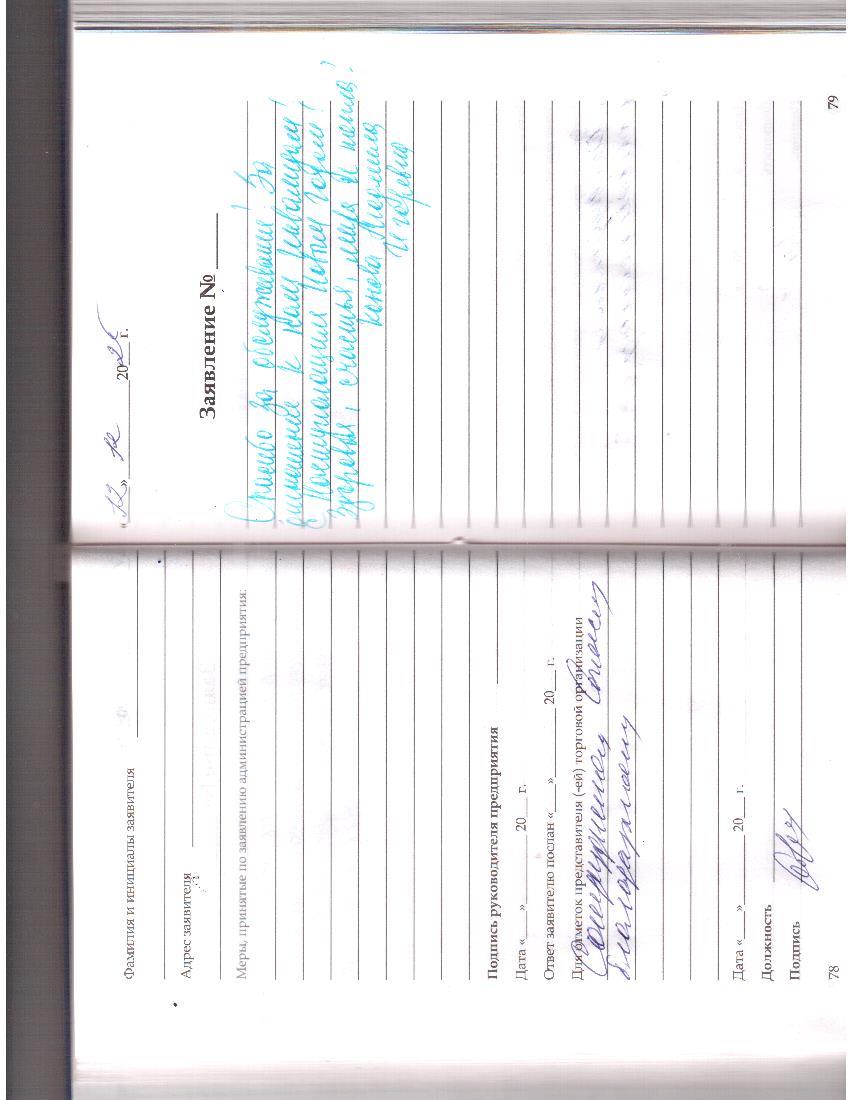 Фамилия и инициалы заявителя
Адрес заявителя
Меры, принятые по заявлению администрацией предприятия:
Подпись руководителя предприятия
Дата «___» ________ 20___ г.
Ответ заявителю послан «___» ________ 20___ г.
Для отметок представителя (-ей) торговой организации
Сотруднику
благодарность
Дата «___» ________ 20___ г.
Должность
Подпись
78
«12» 12 2025 г.
Заявление № ____
Спасибо за обслуживание! За
отношение к нам
с наступающим Новым годом!
здоровья, счастья, мира и
Игоревна
79